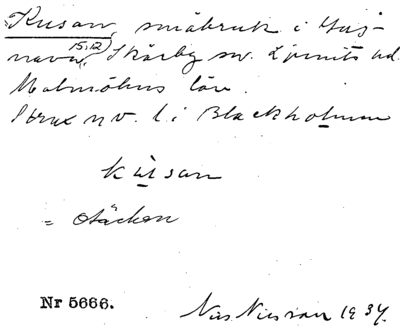 Kusan, småbruk i Gus-
nava (15,12), Skårby sn. Ljunits hd.
Malmöhus län.
Strax n v. l. i Blackholmen
kusan
= otäcken
Nr 5666.
Nils Nilsson 1934.